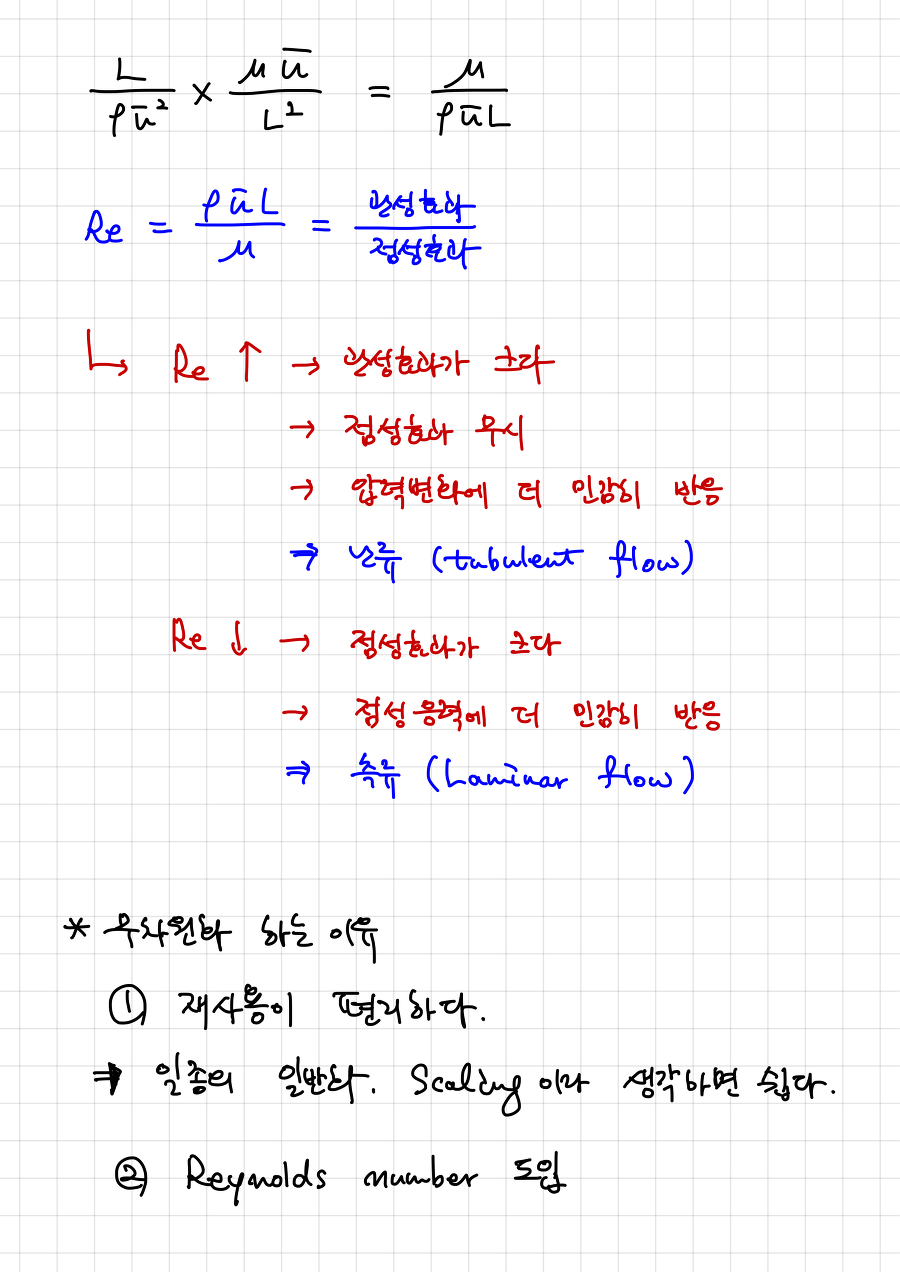 L / ρū² × μū / L² = μ / ρūL
Re = ρūL / μ = 관성효과 / 점성효과
↳ Re ↑ → 관성효과가 크다
→ 점성효과 무시
→ 압력변화에 더 민감히 반응
⇒ 난류 (tubulent flow)
Re ↓ → 점성효과가 크다
→ 점성응력에 더 민감히 반응
⇒ 층류 (Laminar flow)
* 무차원화 하는 이유
① 재사용이 편리하다.
⇒ 일종의 일반화. Scaling 이라 생각하면 쉽다.
② Reynolds number 도입